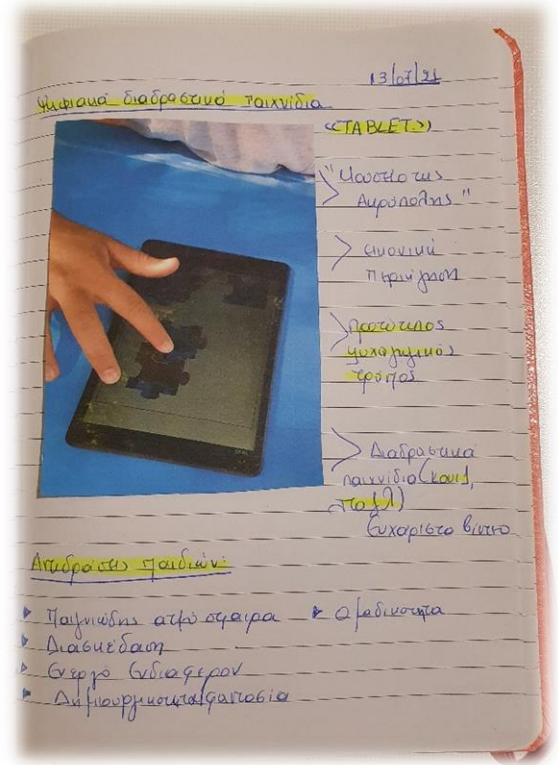 13/07/21
Ψηφιακά διαδραστικά παιχνίδια
«TABLET»
"Μουσείο της
Ακρόπολης"
Εικονική
Περιήγηση
Πρωτότυπος
ψυχαγωγικός
τρόπος
Διαδραστικά
παιχνίδια (κουίζ,
παζλ)
Ευχάριστο βίντεο
Αντιδράσεις παιδιών:
Παιγνιώδης ατμόσφαιρα
Ομαδικότητα
Διασκέδαση
Ενεργό ενδιαφέρον
Δημιουργικότητα/φαντασία